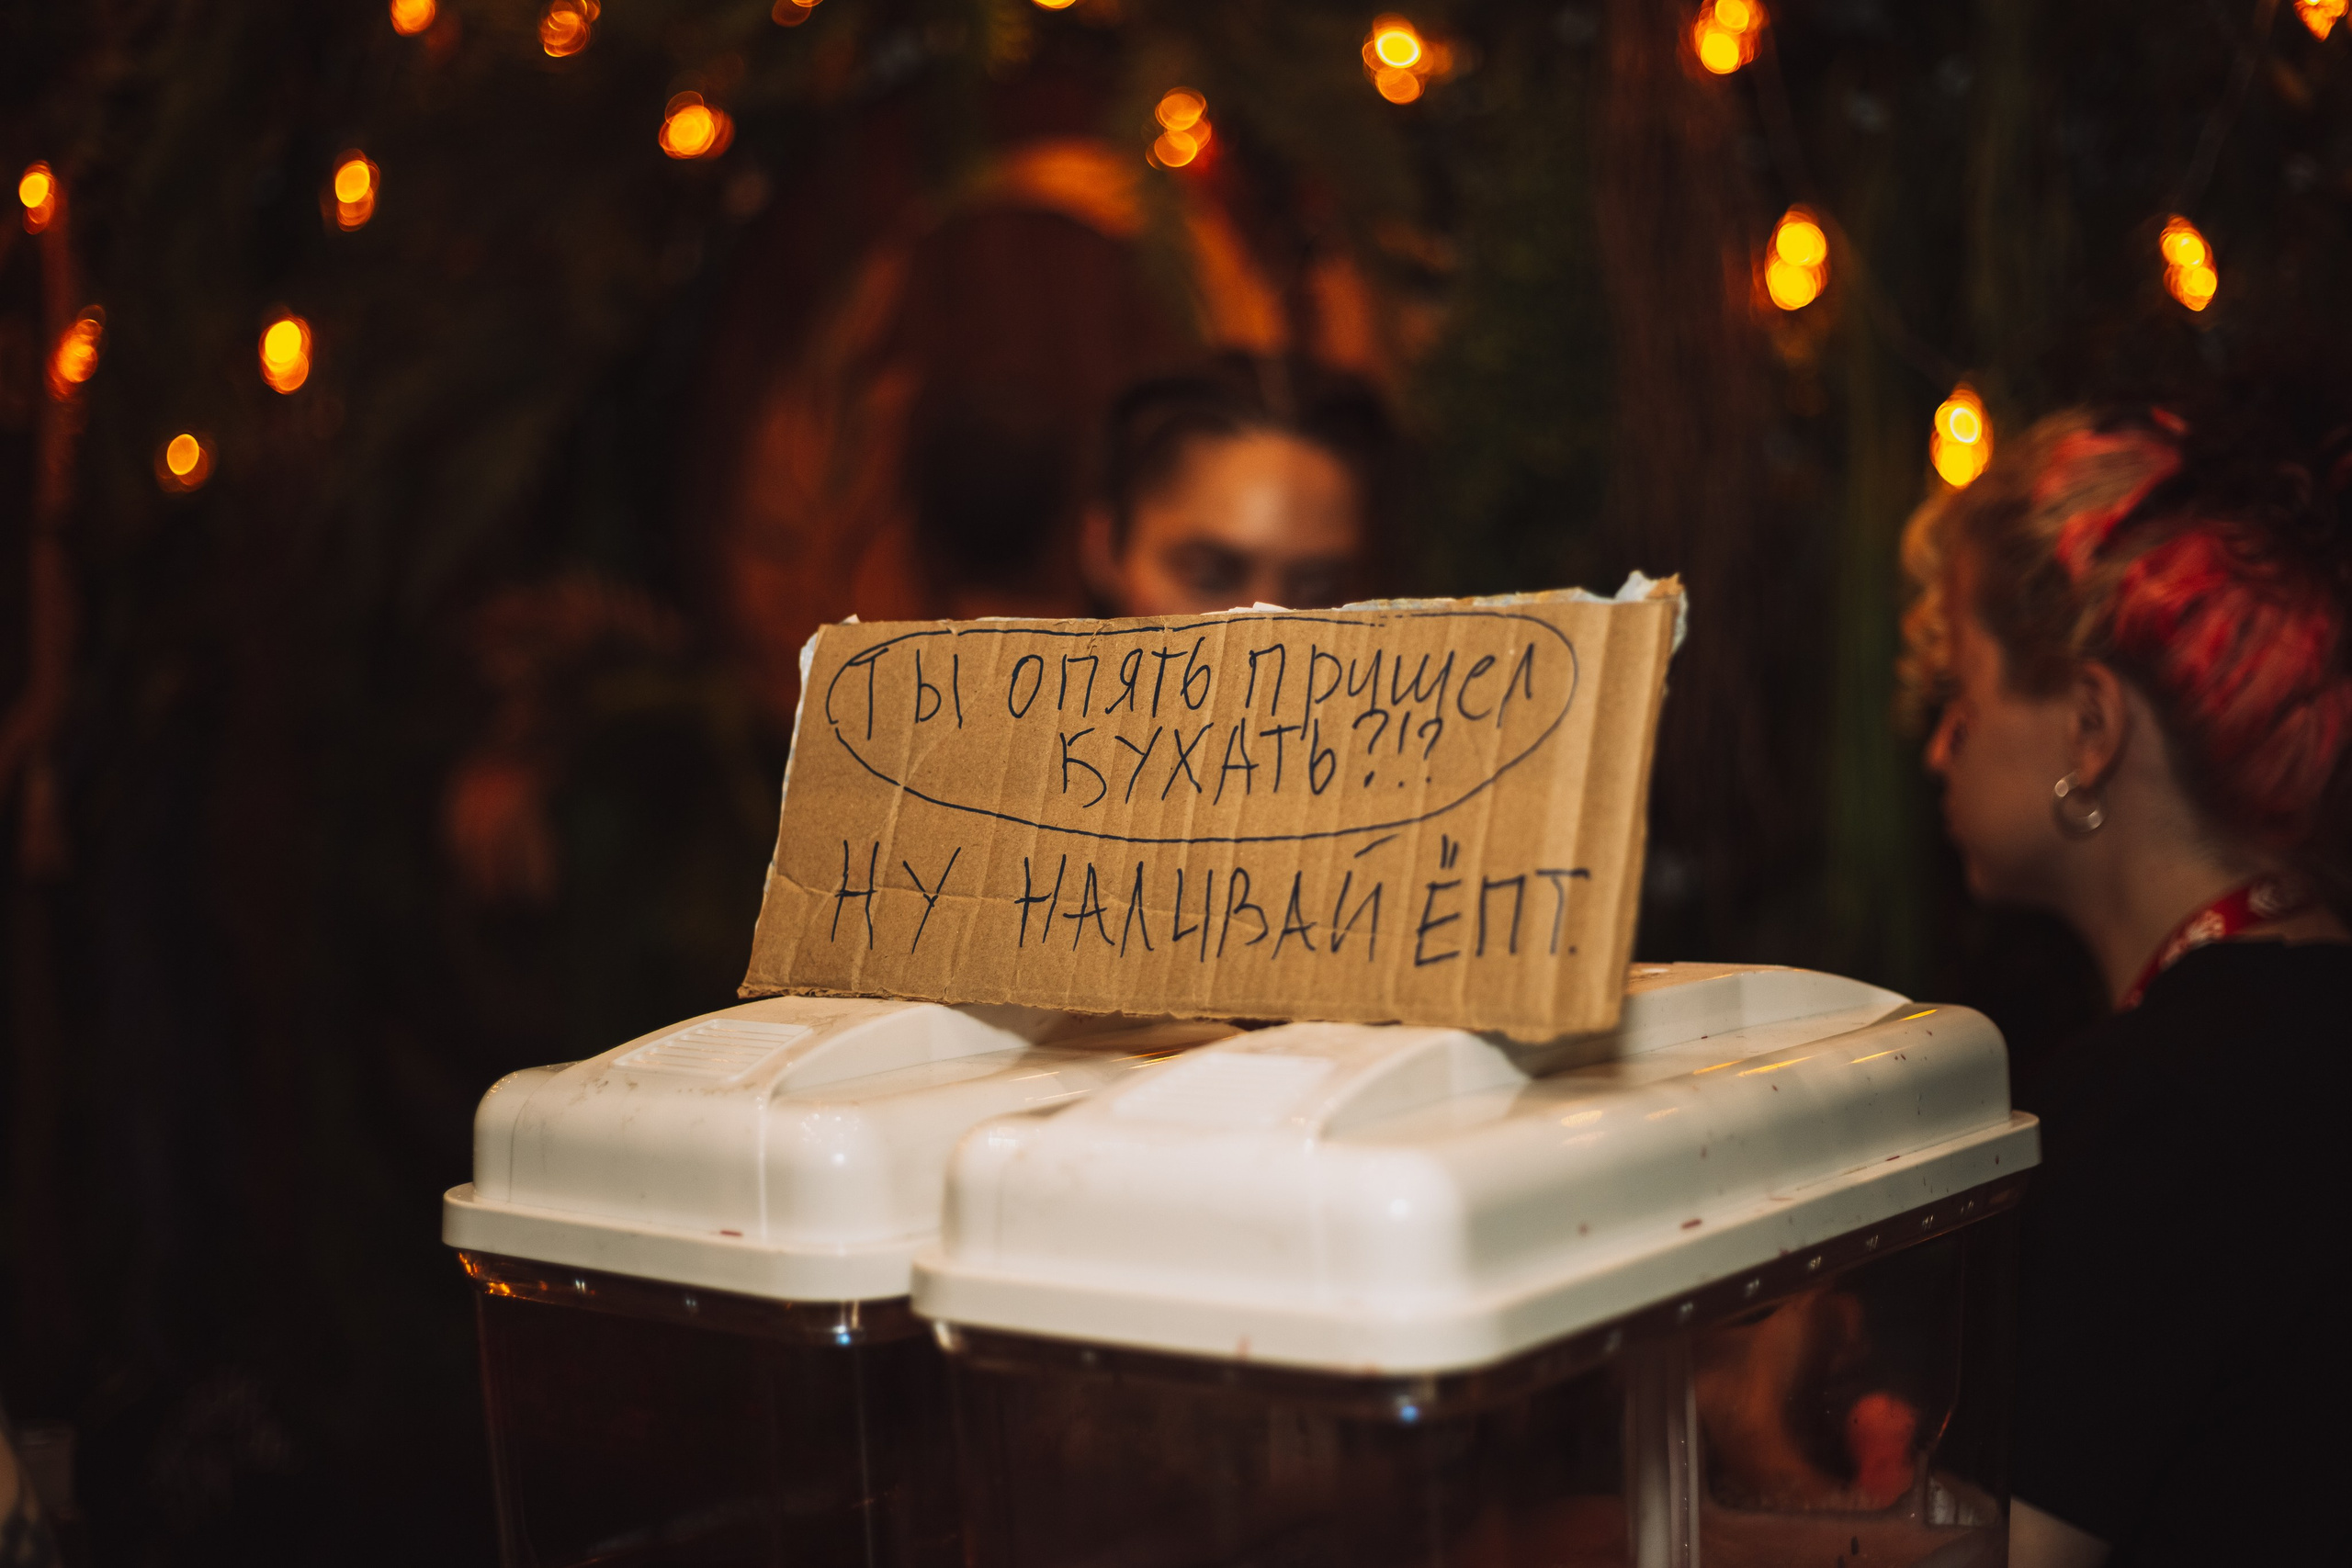 Ты опять пришел
БУХАТЬ?!?
НУ НАЛИВАЙ ЁПТ.